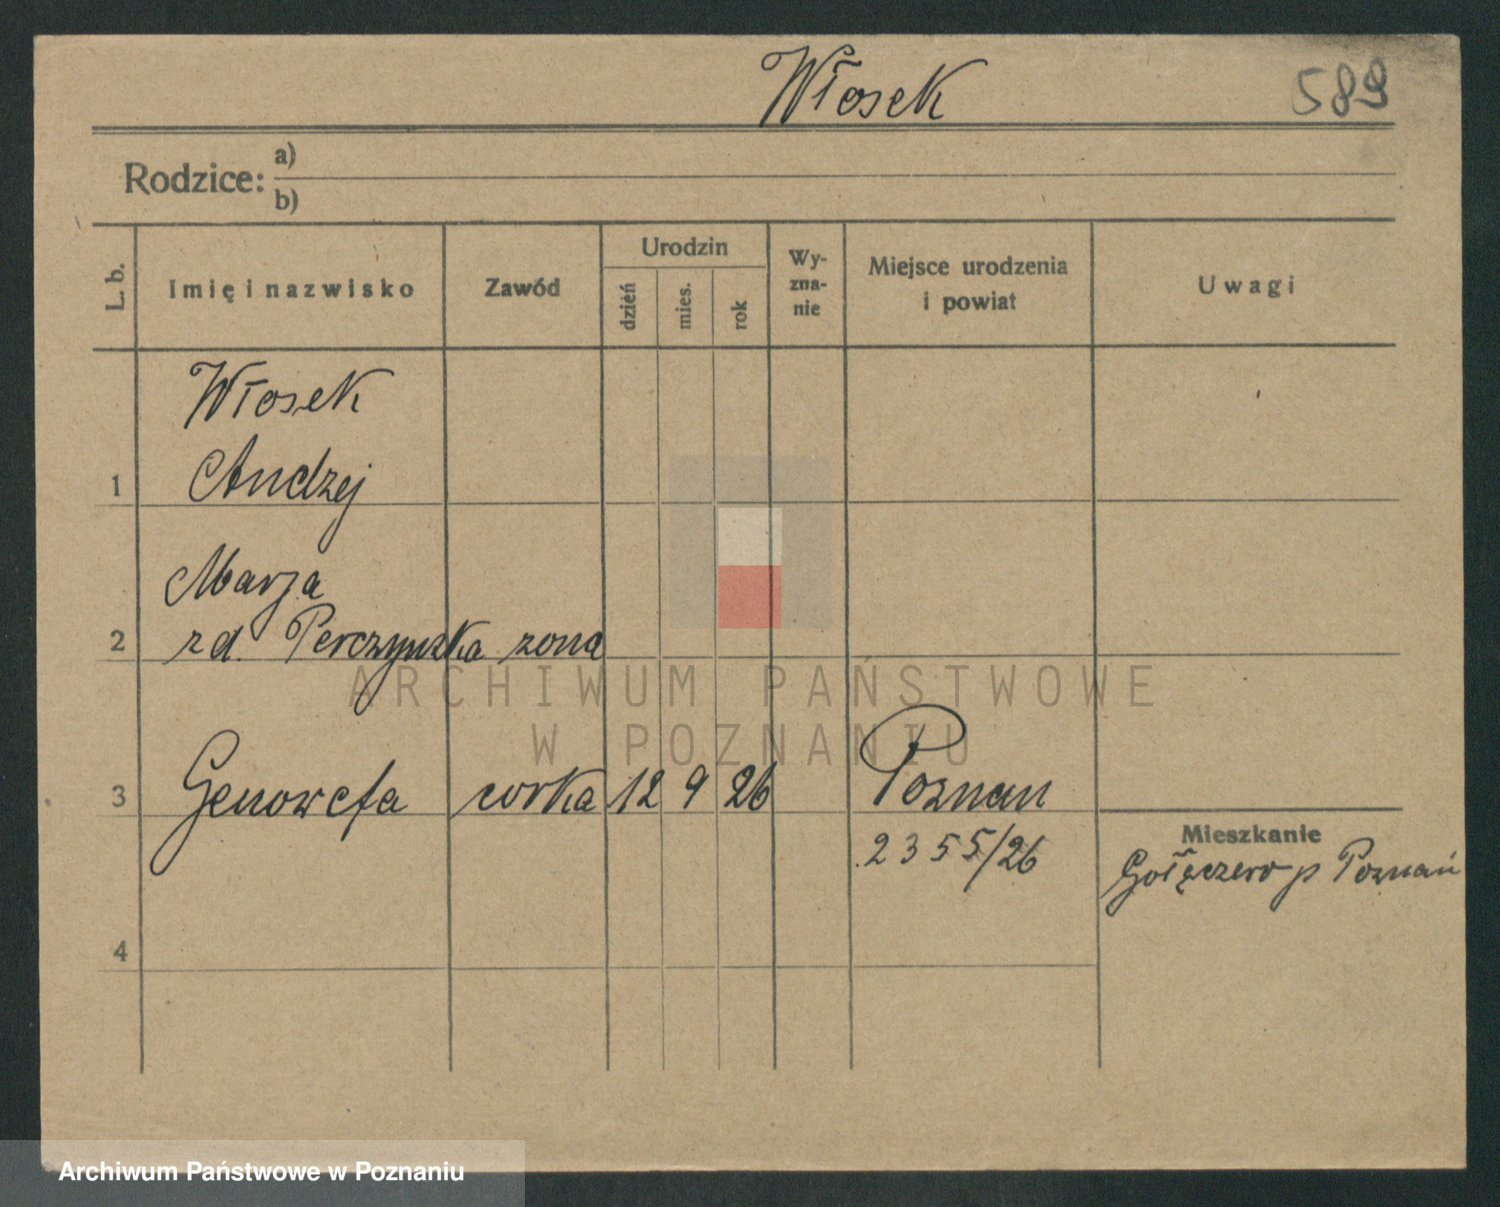 Włosek
589
Rodzice: a)
b)
L. b.
Imię i nazwisko
Zawód
Urodzin
dzień
mies.
rok
Wy-
zna-
nie
Miejsce urodzenia
i powiat
Uwagi
Włosek
1 Andzej
Marja
2 zd. Perczynska zona
3 Genowefa corka 12 9 26 Poznan
2355/26
Mieszkanie
Gołęczewo p Poznań
4
ARCHIWUM PAŃSTWOWE
W POZNANIU
Archiwum Państwowe w Poznaniu